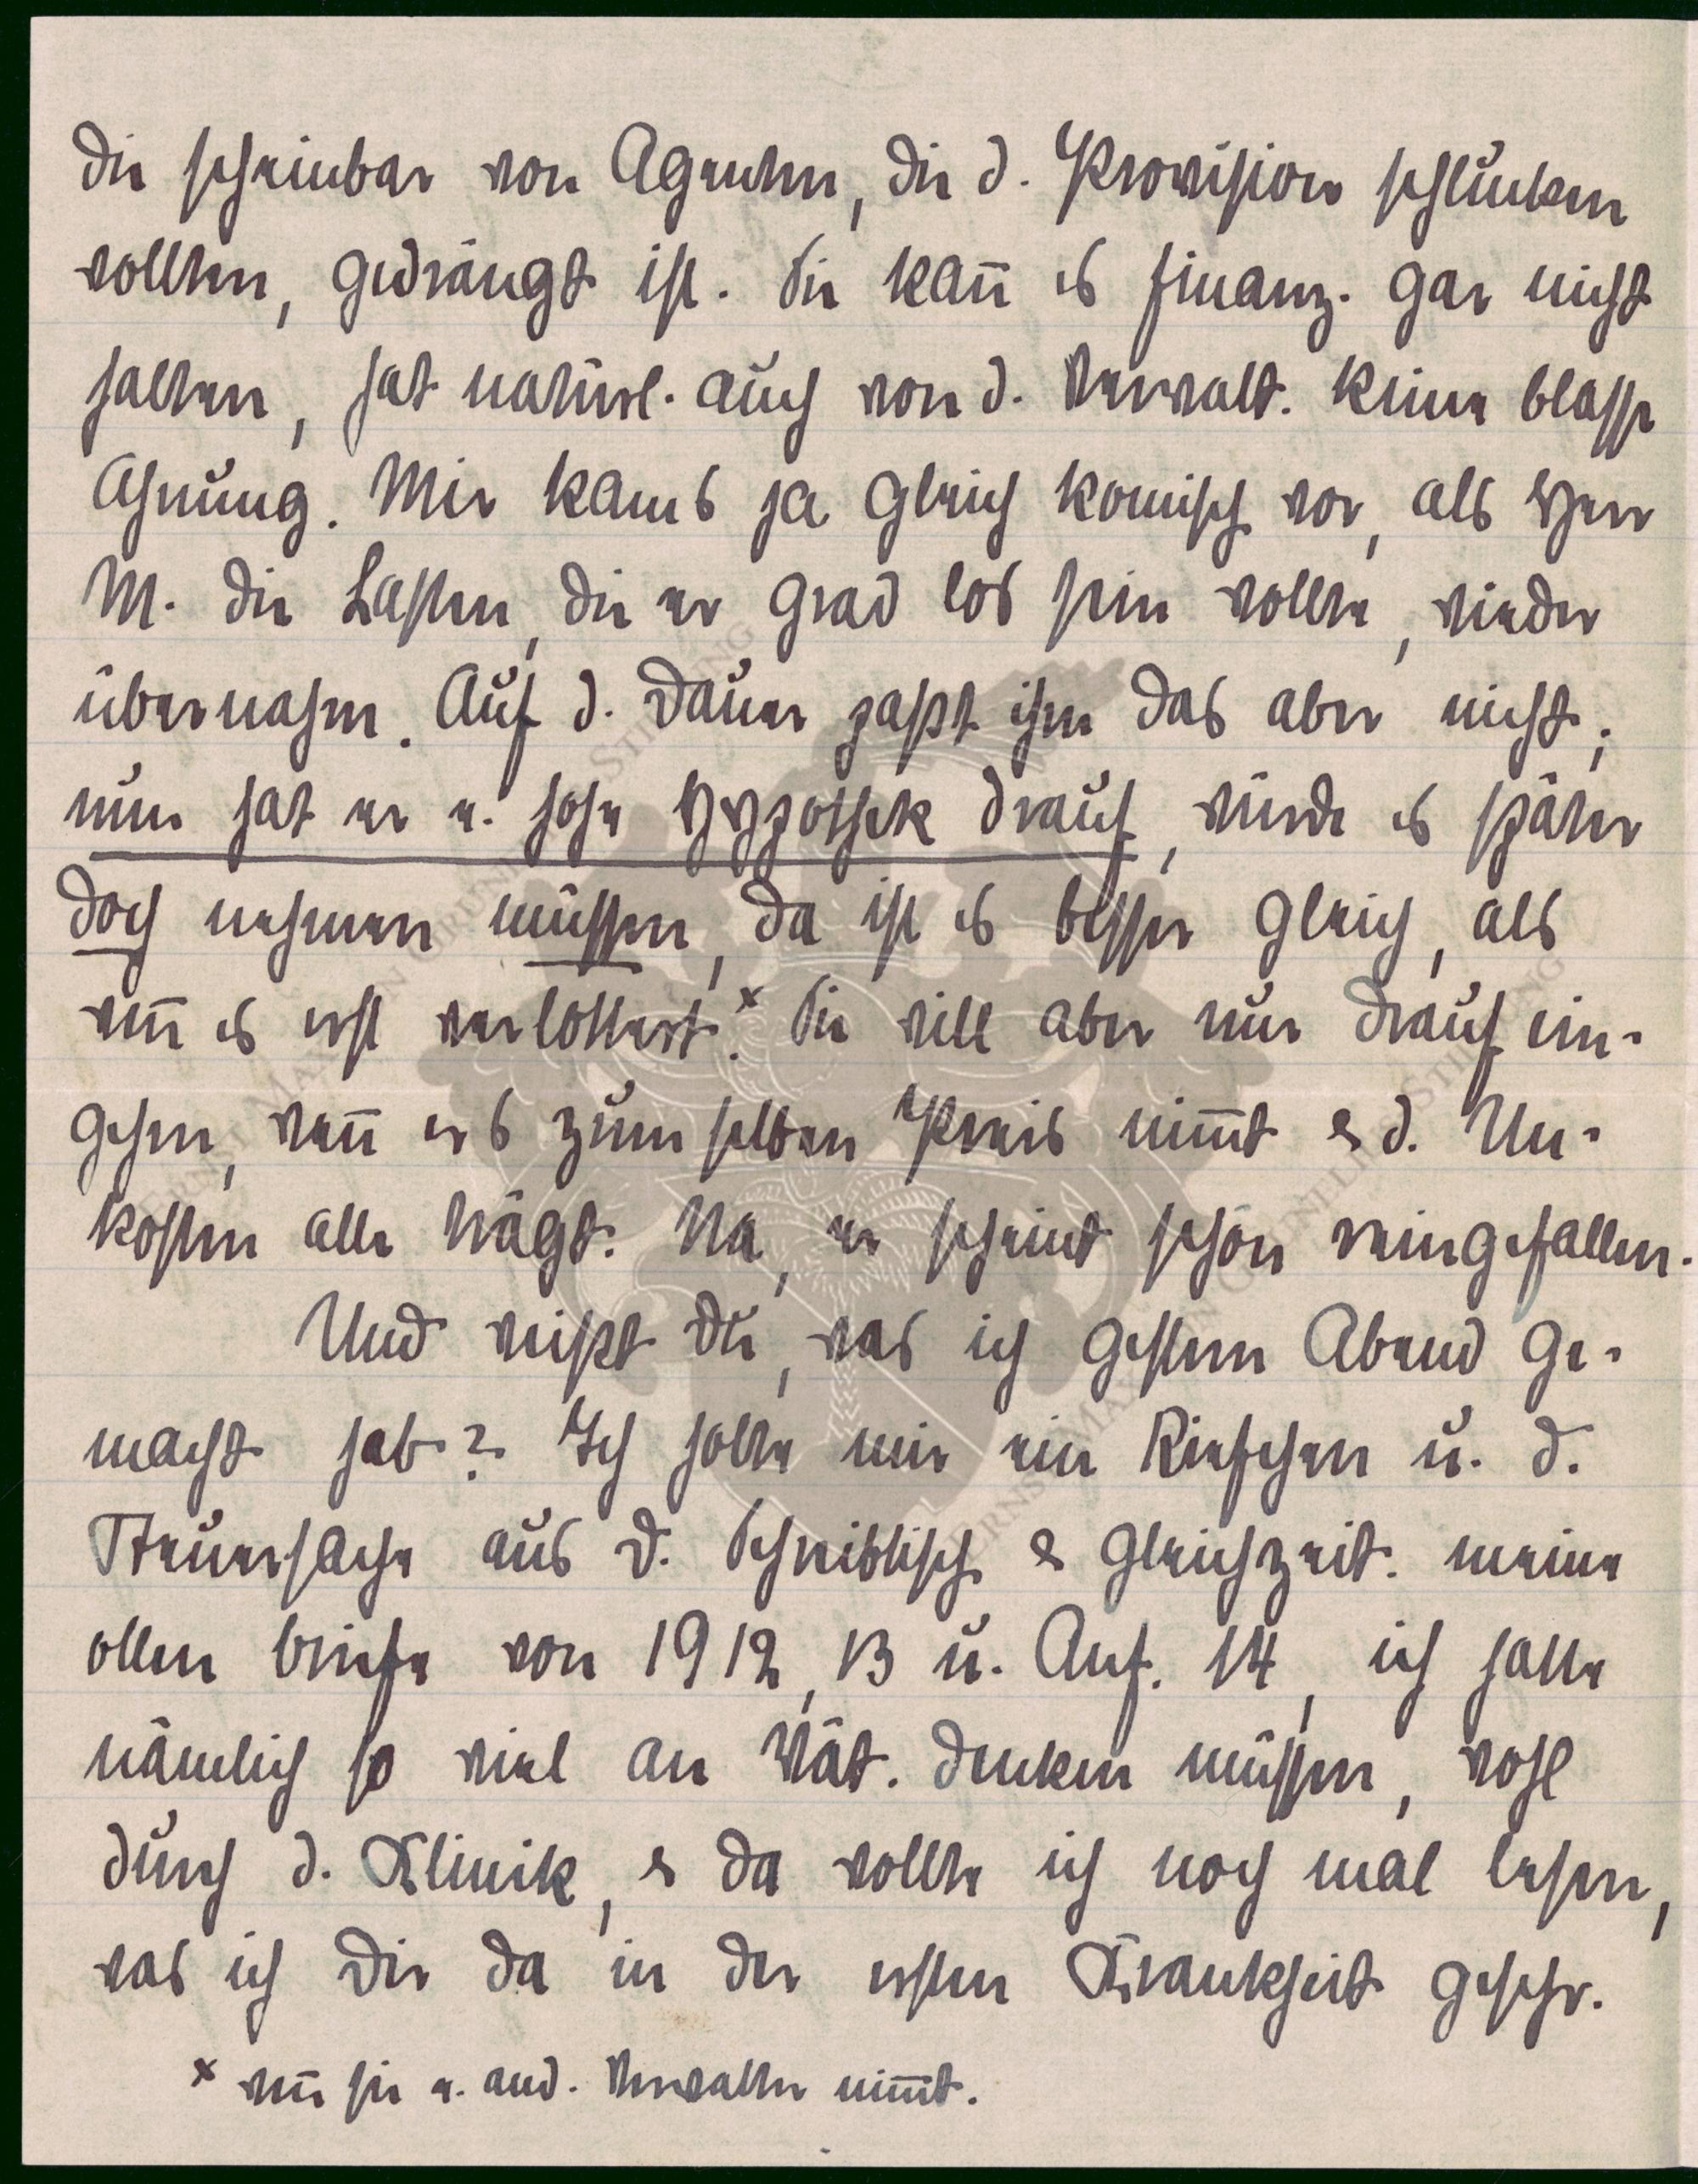 die scheinbar von Agenten, die d. Provision schlucken
wollten, gedrängt ist. Sie kan̄ es finanz. gar nicht
halten, hat natürl. auch von d. Verwalt. keine blasse
Ahnung. Mir kams ja gleich komisch vor, als Herr
M. die Lasten, die er grad los sein wollte, wieder
übernahm. Auf d. Dauer paßt ihm das aber nicht;
nun hat er e. hohe Hypothek drauf, würde es später
doch nehmen müssen, da ist es besser gleich, als
wen̄ es erst verlottert.x Sie will aber nur drauf ein-
gehen, wen̄ ers zum selben Preis nim̄t & d. Un-
kosten alle trägt. Na, er scheint schön reingefallen.
Und weißt Du, was ich gestern Abend ge-
macht hab? Ich holte mir ein Kiefchen u. d.
Steuersache aus d. Schreibtisch & gleichzeit. meine
ollen Briefe von 1912, 13 u. Anf. 14, ich hatte
nämlich so viel an Vät. denken müssen, wohl
durch d. Klinik, & da wollte ich noch mal lesen,
was ich Dir da in der ersten Krankheit geschr.
x wen̄ sie e. and. Verwalter nim̄t.
ERNST MAX VON GRUNELIUS-STIFTUNG
ERNST MAX VON GRUNELIUS-STIFTUNG